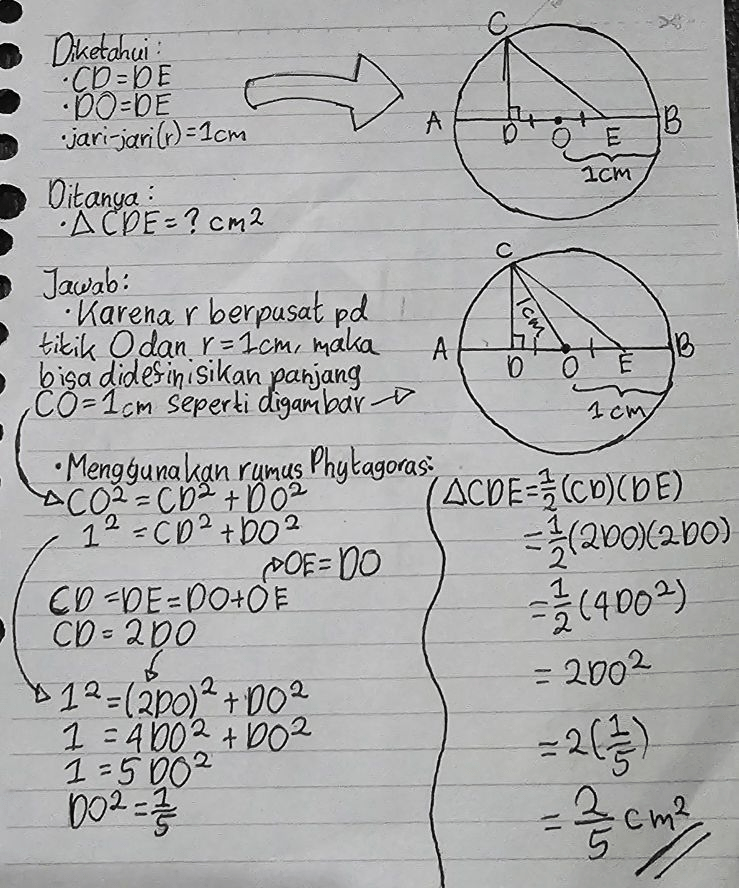 Diketahui:
• CD = DE
• DO = DE
• jari-jari (r) = 1 cm
C
A
D
O
E
B
1 cm
Ditanya:
• Δ CDE = ? cm²
Jawab:
• Karena r berpusat pd
titik O dan r = 1 cm, maka
bisa didefinisikan panjang
CO = 1 cm seperti digambar →
C
1 cm
A
D
O
E
B
1 cm
• Menggunakan rumus Phytagoras:
CO² = CD² + DO²
1² = CD² + DO²
→ OE = DO
CD = DE = DO + OE
CD = 2DO
1² = (2DO)² + DO²
1 = 4DO² + DO²
1 = 5 DO²
DO² = 1/5
ΔCDE = 1/2 (CD)(DE)
= 1/2 (2DO)(2DO)
= 1/2 (4DO²)
= 2DO²
= 2(1/5)
= 2/5 cm²